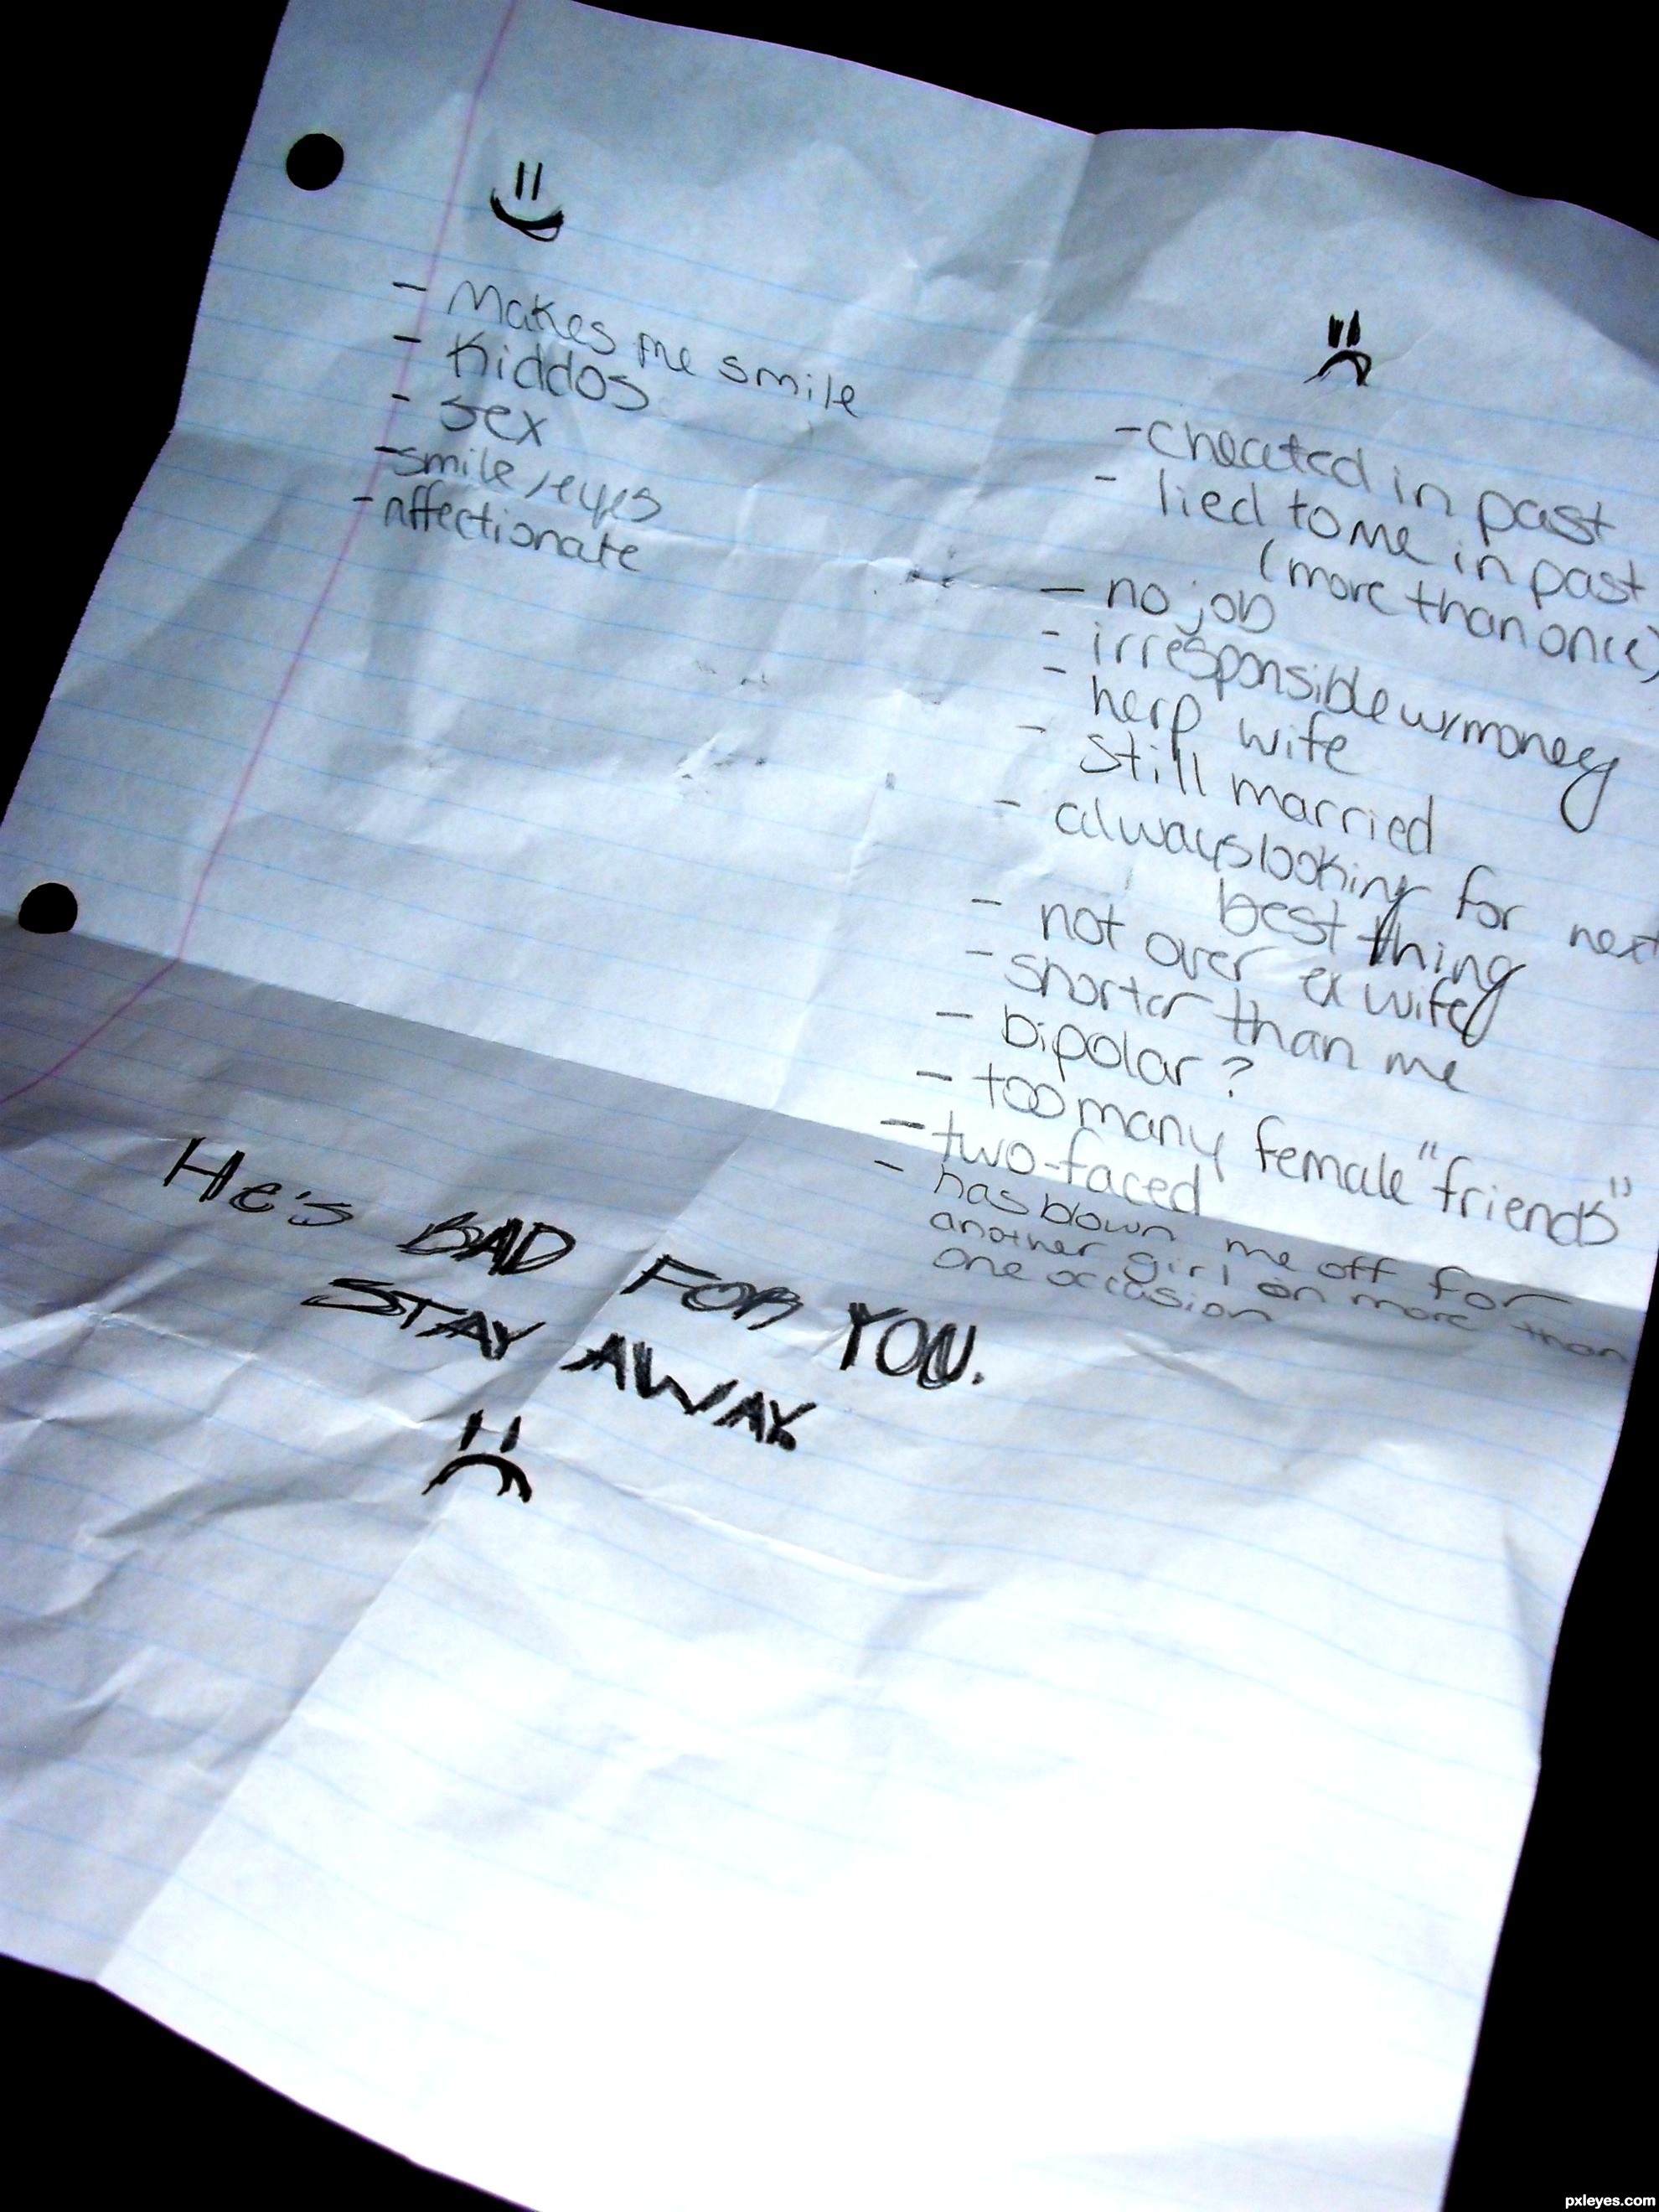 - Makes me smile
- Kiddos
- sex
- smile/eyes
- Affectionate
- cheated in past
- lied to me in past
(more than once)
- no job
- irresponsible w/money
- herp wife
- still married
- always looking for next
best thing
- not over ex wife
- shorter than me
- bipolar?
- too many female "friends"
- two-faced
- has blown me off for
another girl on more than
one occasion
He's BAD FOR YOU.
STAY AWAY.
pxleyes.com